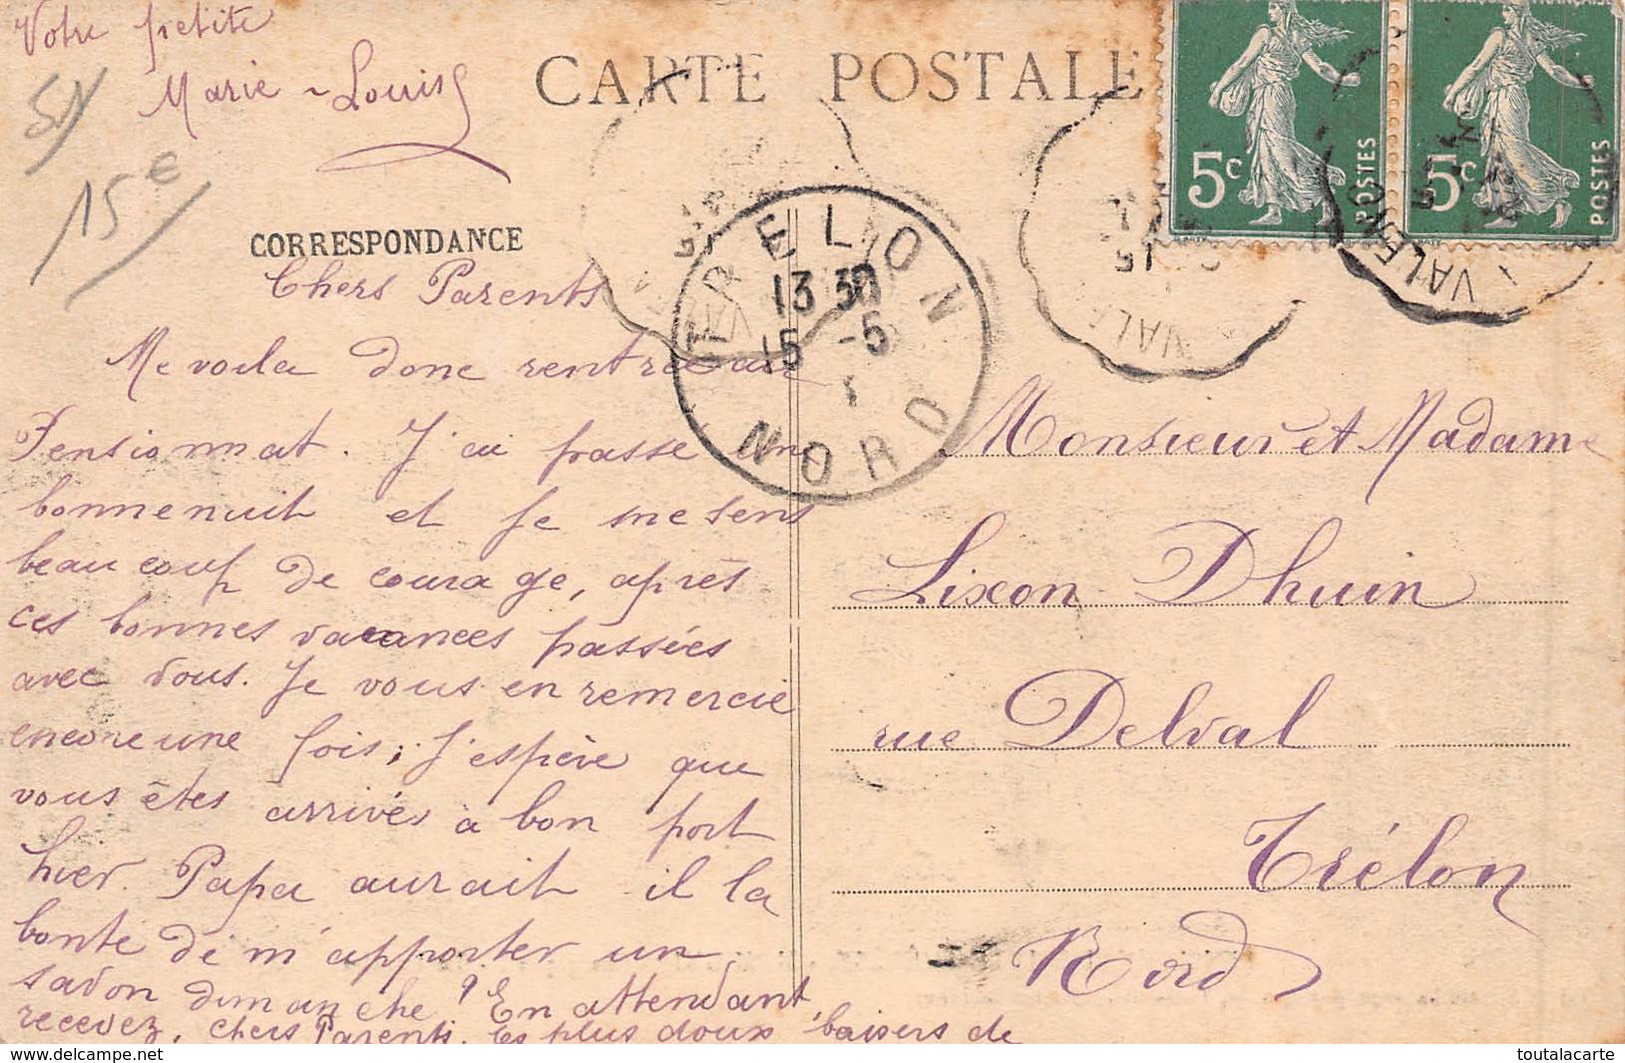 Votre petite
Marie-Louise
51
15€
CARTE POSTALE
5c POSTES
5c POSTES
CORRESPONDANCE
TRELON
13 30
15 -5
NORD
Chers Parents
Me voila donc rentrée au
Pensionnat. J'ai passé une
bonne nuit et je me sens
beaucoup de courage, après
ces bonnes vacances passées
avec vous. Je vous en remercie
encore une fois; J'espère que
vous êtes arrivés à bon port
hier. Papa aurait il la
bonte de m'apporter un
savon dimanche? En attendant
recevez, chers Parents, les plus doux baisers de
Monsieur et Madame
Lixon-Dhuin
rue Delval
Trélon
Nord
www.delcampe.net
toutalacarte